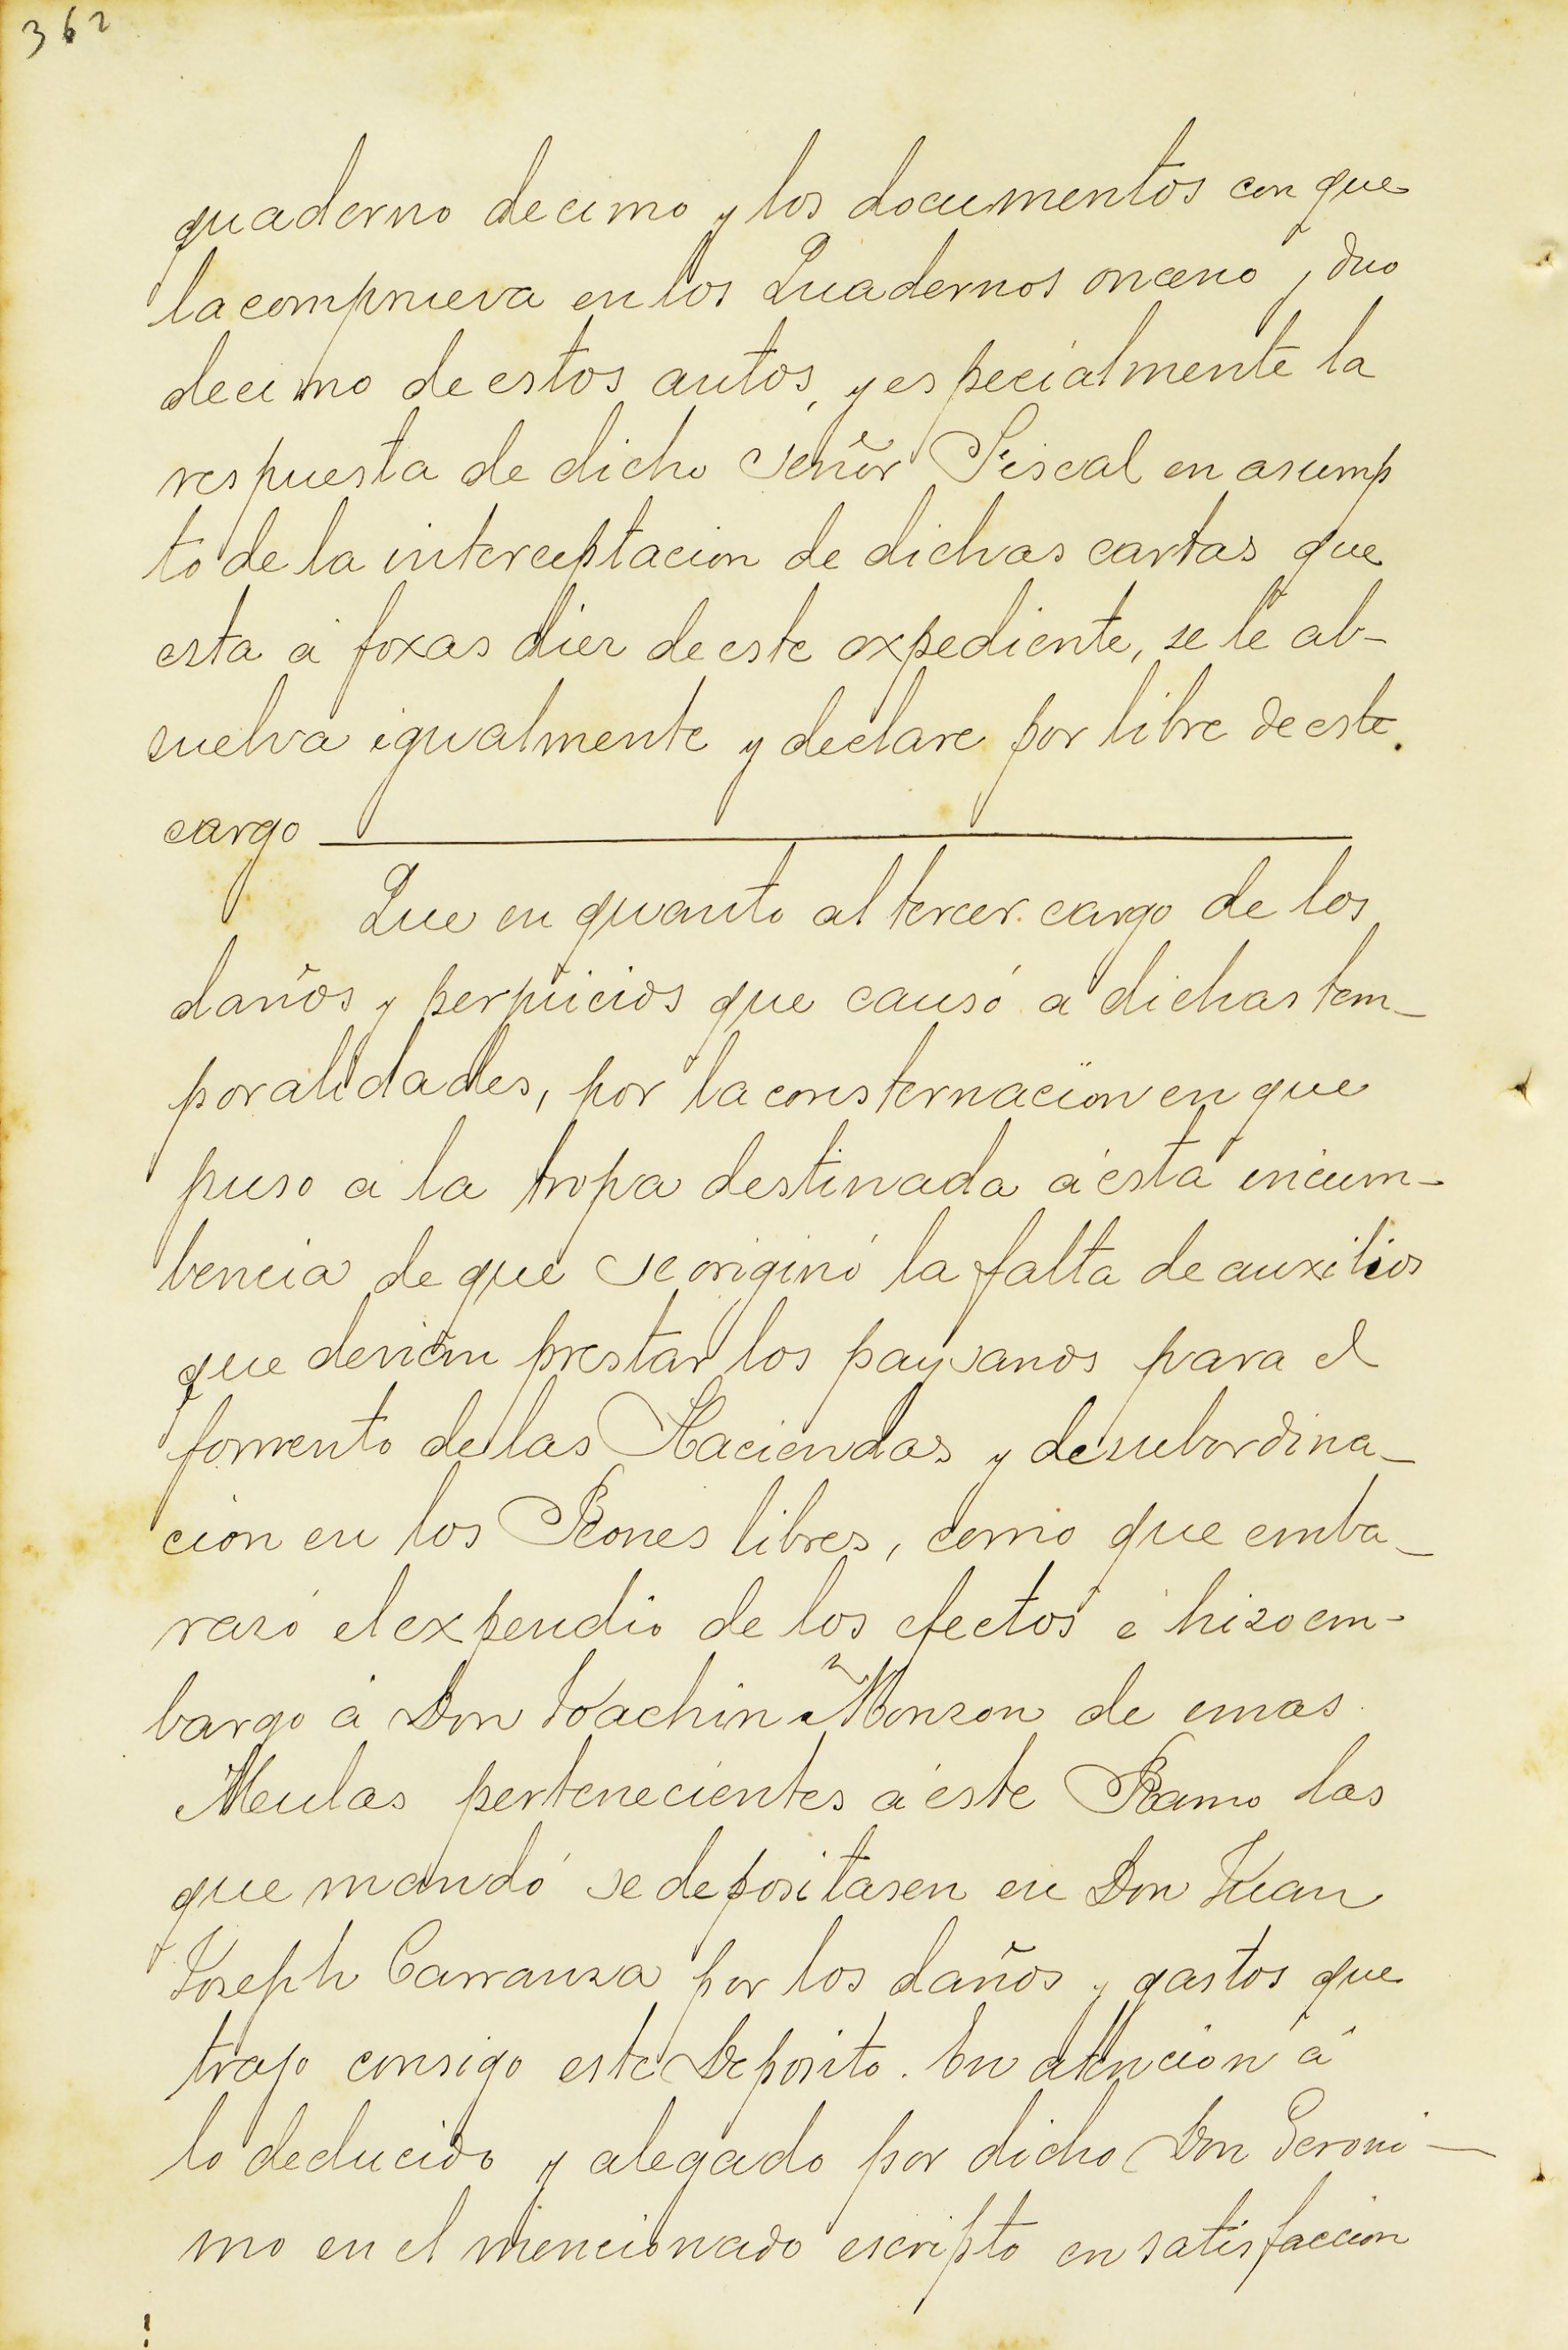 362
quaderno decimo y los documentos con que
la comprueva en los Quadernos onceno y duo
decimo de estos autos, y especialmente la
respuesta de dicho Señor Fiscal en asump
to de la interceptacion de dichas cartas que
esta á foxas diez de este expediente, se le ab-
suelva igualmente y declare por libre de este
cargo
Que en quanto al tercer cargo de los
daños y perjuicios que causó á dichas tem-
poralidades, por la consternacion en que
puso á la tropa destinada á esta incum-
bencia de que se originó la falta de auxilios
que devian prestar los paysanos para el
fomento de las Haciendas y desubordina-
cion en los Peones libres, como que emba-
razó el expendio de los efectos é hizo em-
bargo á Don Joachin Monzon de unas
Mulas pertenecientes á este Ramo las
que mandó se depositasen en Don Juan
Joseph Carranza por los daños y gastos que
trajo consigo este Deposito. En atencion á
lo deducido y alegado por dicho Don Geroni-
mo en el mencionado escripto en satisfaccion